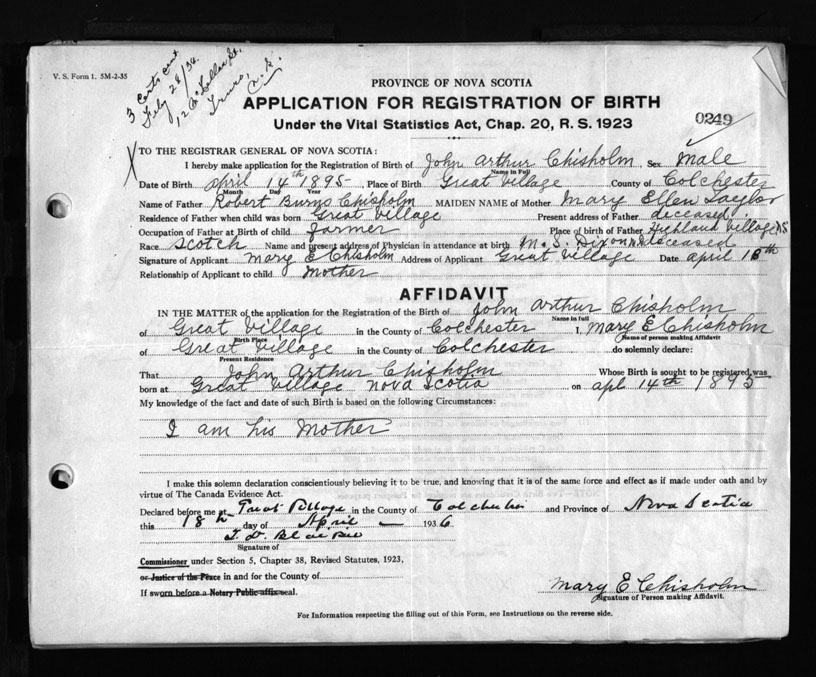 V. S. Form 1. 5M-2-35
3 Certs sent
Feby 28/38
Truro,
N.S.
PROVINCE OF NOVA SCOTIA
APPLICATION FOR REGISTRATION OF BIRTH
0249
Under the Vital Statistics Act, Chap. 20, R. S. 1923
X TO THE REGISTRAR GENERAL OF NOVA SCOTIA:
I hereby make application for the Registration of Birth of John Arthur Chisholm Sex Male
Name in Full
Date of Birth April 14th 1895 Place of Birth Great Village County of Colchester
Month Day Year
Name of Father Robert Burns Chisholm MAIDEN NAME of Mother Mary Ellen Taylor
Residence of Father when child was born Great Village Present address of Father deceased
Occupation of Father at Birth of child Farmer Place of birth of Father Highland Village NS
Race Scotch Name and present address of Physician in attendance at birth M. S. Dixon deceased
Signature of Applicant Mary E Chisholm Address of Applicant Great Village Date April 18th
Relationship of Applicant to child Mother
AFFIDAVIT
IN THE MATTER of the application for the Registration of the Birth of John Arthur Chisholm
Name in full
of Great Village in the County of Colchester I, Mary E Chisholm
Birth Place Name of person making Affidavit
of Great Village in the County of Colchester do solemnly declare:
Present Residence
That John Arthur Chisholm Whose Birth is sought to be registered, was
born at Great Village Nova Scotia on apl 14th 1895
My knowledge of the fact and date of such Birth is based on the following Circumstances:
I am his Mother
I make this solemn declaration conscientiously believing it to be true, and knowing that it is of the same force and effect as if made under oath and by
virtue of The Canada Evidence Act.
Declared before me at Great Village in the County of Colchester and Province of Nova Scotia
this 18th day of April 1936
Signature of
Commissioner under Section 5, Chapter 38, Revised Statutes, 1923,
or Justice of the Peace in and for the County of
If sworn before a Notary Public affix seal.
Mary E Chisholm
Signature of Person making Affidavit.
For Information respecting the filling out of this Form, see Instructions on the reverse side.